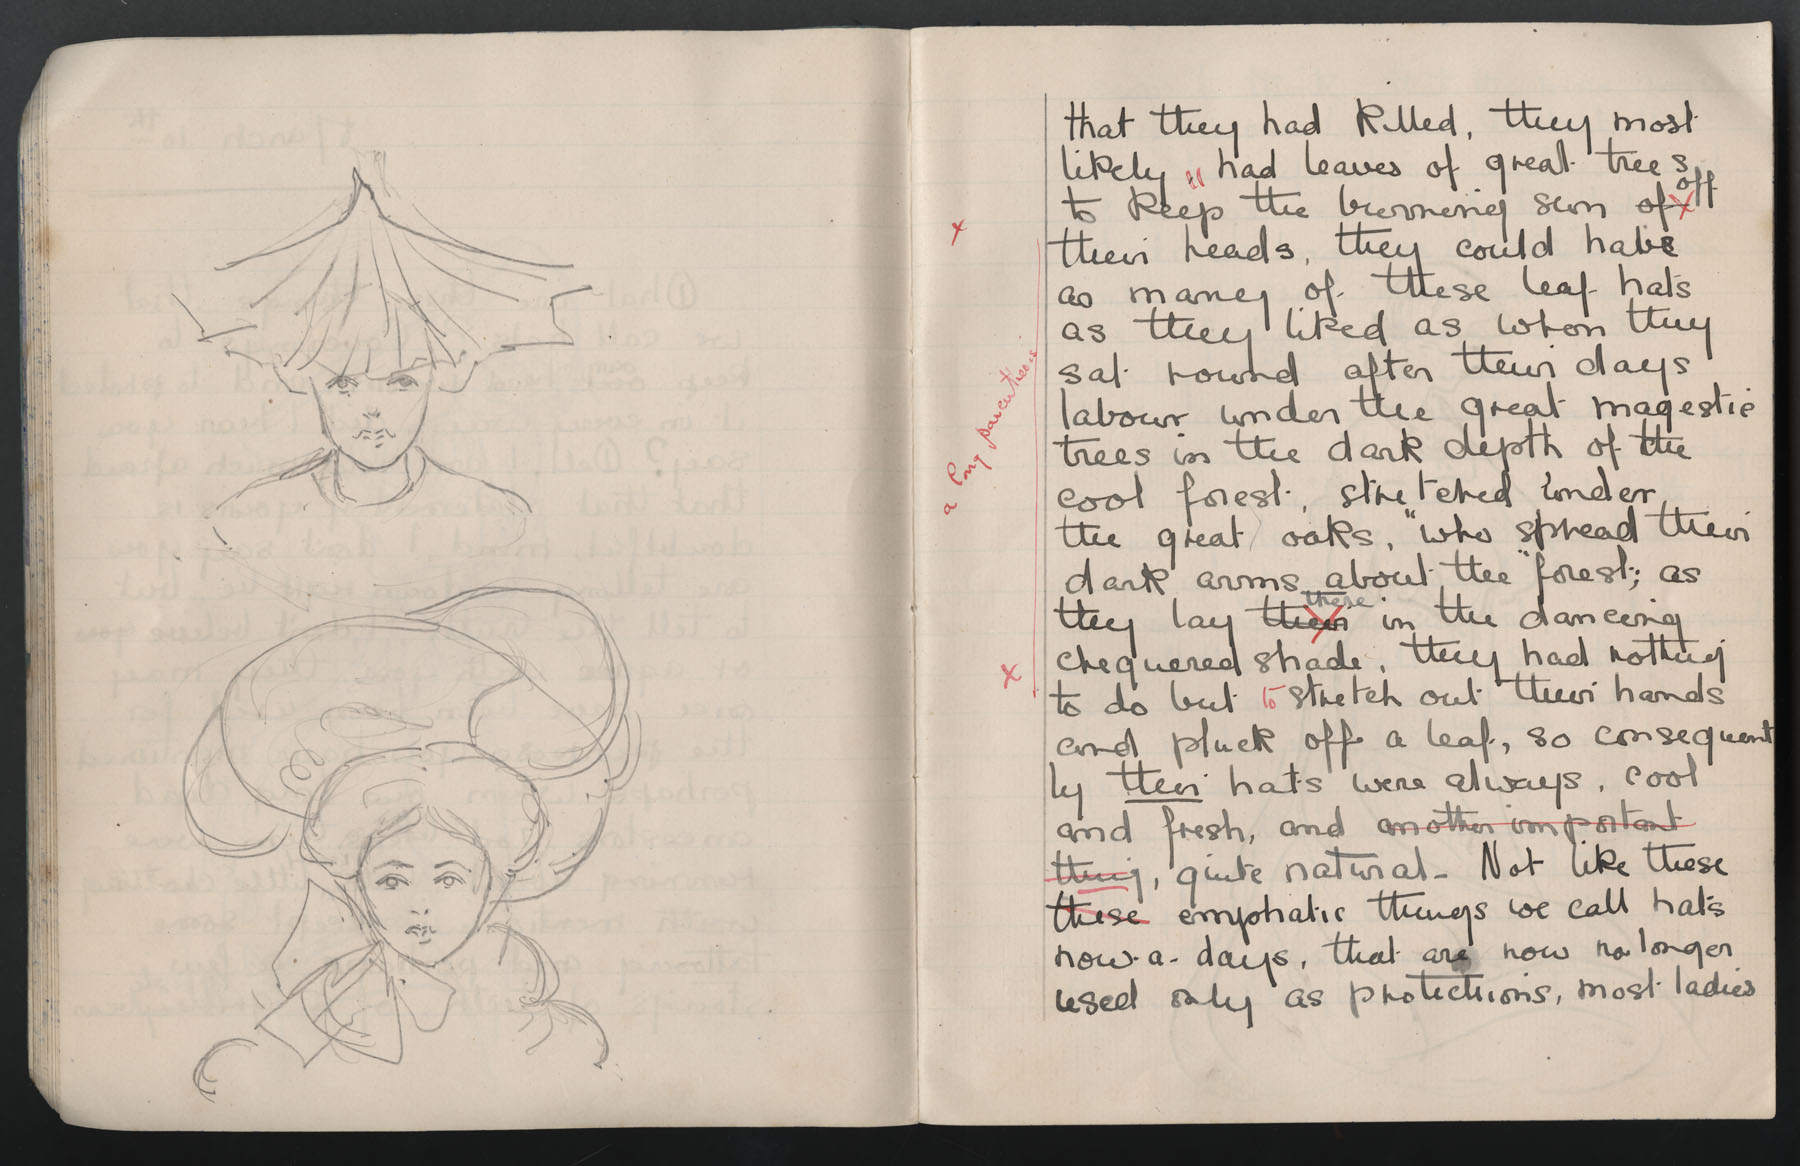 that they had killed, they most
likely " had leaves of great trees
to keep the burning sun of off
their heads, they could have
as many of these leaf hats
as they liked as when they
sat round after their days
labour under the great magestic
trees in the dark depth of the
cool forest, stretched under
the great oaks, "who spread their
dark arms about the" forest; as
they lay their there in the dancing
chequered shade, they had nothing
to do but to stretch out their hands
and pluck off a leaf, so consequent
ly their hats were always, cool
and fresh, and another important
thing, quite natural - Not like these
these emphatic things we call hats
now-a-days, that are now no longer
used only as protections, most ladies
x
a long parenthesis
x